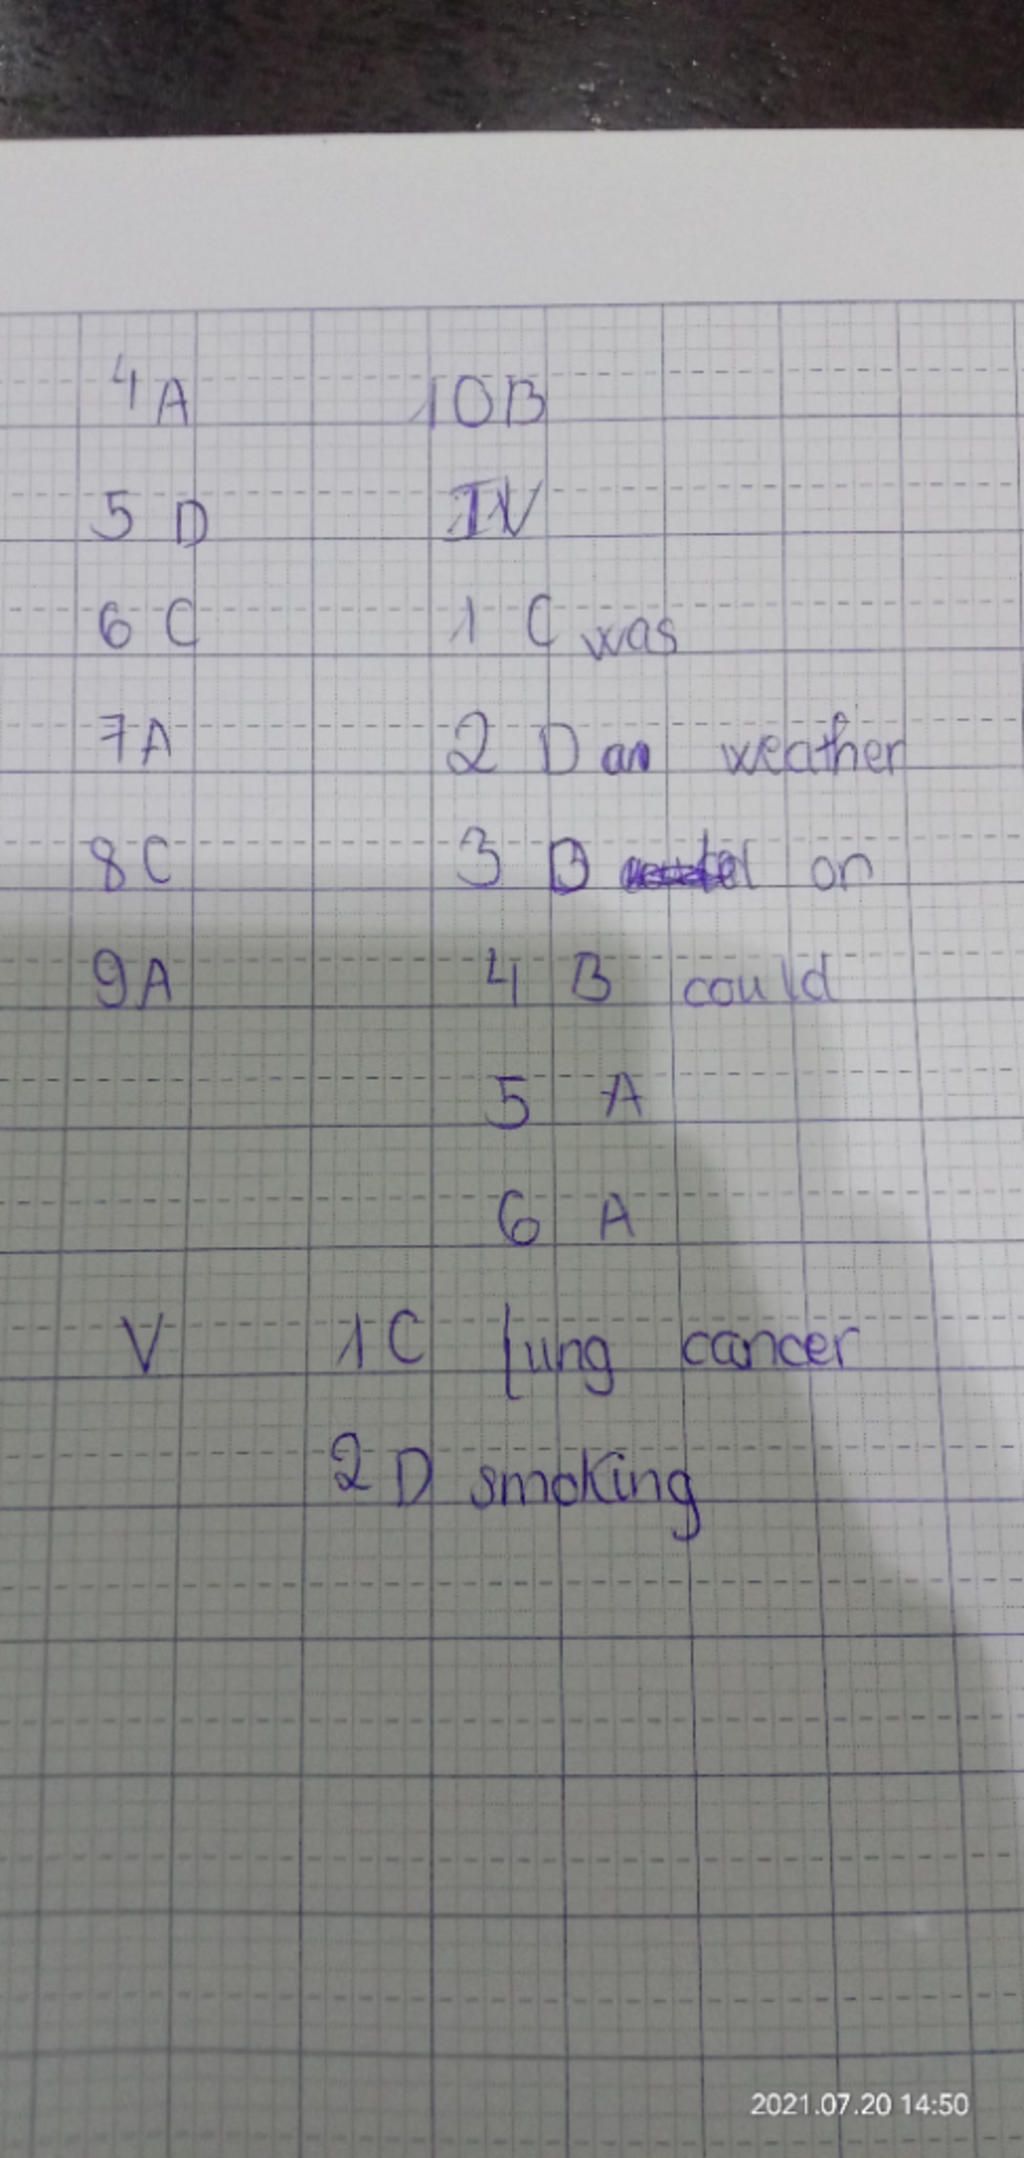 4 A
5 D
6 C
7 A
8 C
9 A
10 B
IV
1 C was
2 D an weather
3 B on
4 B could
5 A
6 A
V 1 C lung cancer
2 D smoking
2021.07.20 14:50